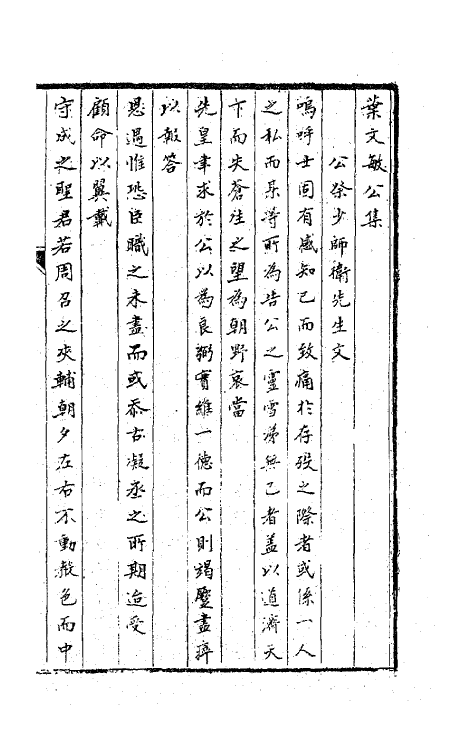 葉文敏公集
公祭少師衛先生文
嗚呼士固有感知己而致痛於存歿之際者或係一人
之私而某等所為告公之靈雪涕無已者蓋以道濟天
下而失蒼生之望為朝野哀當
先皇聿求於公以為良弼實維一德而公則竭蹷盡瘁
以報答
恩遇惟恐臣職之未盡而或忝古凝丞之所期迨受
顧命以翼戴
守成之聖君若周召之夾輔朝夕左右不動聲色而中